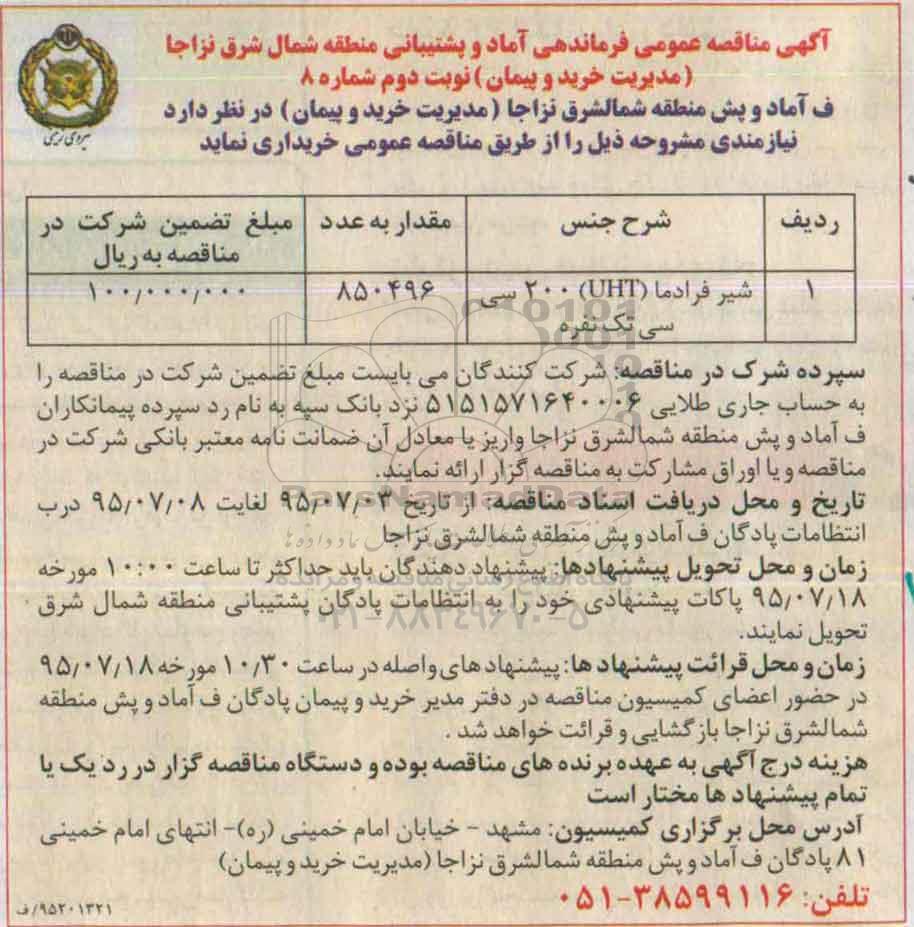 آگهی مناقصه عمومی فرماندهی آماد و پشتیبانی منطقه شمال شرق نزاجا
(مدیریت خرید و پیمان) نوبت دوم شماره ۸
ف آماد و پش منطقه شمالشرق نزاجا (مدیریت خرید و پیمان) در نظر دارد
نیازمندی مشروحه ذیل را از طریق مناقصه عمومی خریداری نماید
نیروی زمینی
ردیف شرح جنس مقدار به عدد مبلغ تضمین شرکت در
مناقصه به ریال
۱ شیر فرادما (UHT) ۲۰۰ سی ۸۵۰۴۹۶ ۱۰۰/۰۰۰/۰۰۰
سی تک نفره
سپرده شرک در مناقصه: شرکت کنندگان می بایست مبلغ تضمین شرکت در مناقصه را
به حساب جاری طلایی ۵۱۵۱۵۷۱۶۴۰۰۰۶ نزد بانک سپه به نام رد سپرده پیمانکاران
ف آماد و پش منطقه شمالشرق نزاجا واریز یا معادل آن ضمانت نامه معتبر بانکی شرکت در
مناقصه و یا اوراق مشارکت به مناقصه گزار ارائه نمایند.
تاریخ و محل دریافت اسناد مناقصه: از تاریخ ۹۵/۰۷/۰۳ لغایت ۹۵/۰۷/۰۸ درب
انتظامات پادگان ف آماد و پش منطقه شمالشرق نزاجا
زمان و محل تحویل پیشنهادها: پیشنهاد دهندگان باید حداکثر تا ساعت ۱۰:۰۰ مورخه
۹۵/۰۷/۱۸ پاکات پیشنهادی خود را به انتظامات پادگان پشتیبانی منطقه شمال شرق
تحویل نمایند.
۰۲۱-۸۸۳۴۹۶۷۰-۵
زمان و محل قرائت پیشنهاد ها: پیشنهاد های واصله در ساعت ۱۰/۳۰ مورخه ۹۵/۰۷/۱۸
در حضور اعضای کمیسیون مناقصه در دفتر مدیر خرید و پیمان پادگان ف آماد و پش منطقه
شمالشرق نزاجا بازگشایی و قرائت خواهد شد .
هزینه درج آگهی به عهده برنده های مناقصه بوده و دستگاه مناقصه گزار در رد یک یا
تمام پیشنهاد ها مختار است
آدرس محل برگزاری کمیسیون: مشهد - خیابان امام خمینی (ره)- انتهای امام خمینی
۸۱ پادگان ف آماد و پش منطقه شمالشرق نزاجا (مدیریت خرید و پیمان)
تلفن: ۳۸۵۹۹۱۱۶-۰۵۱
۹۵۲۰۱۳۲۱/ف